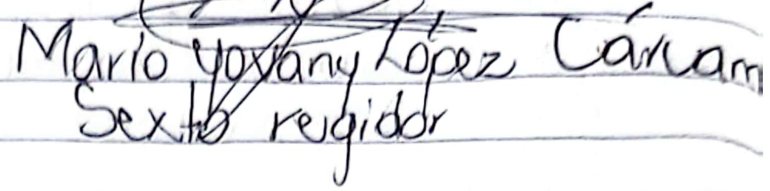 Mario Yovany López Cárcam
Sexto regidor